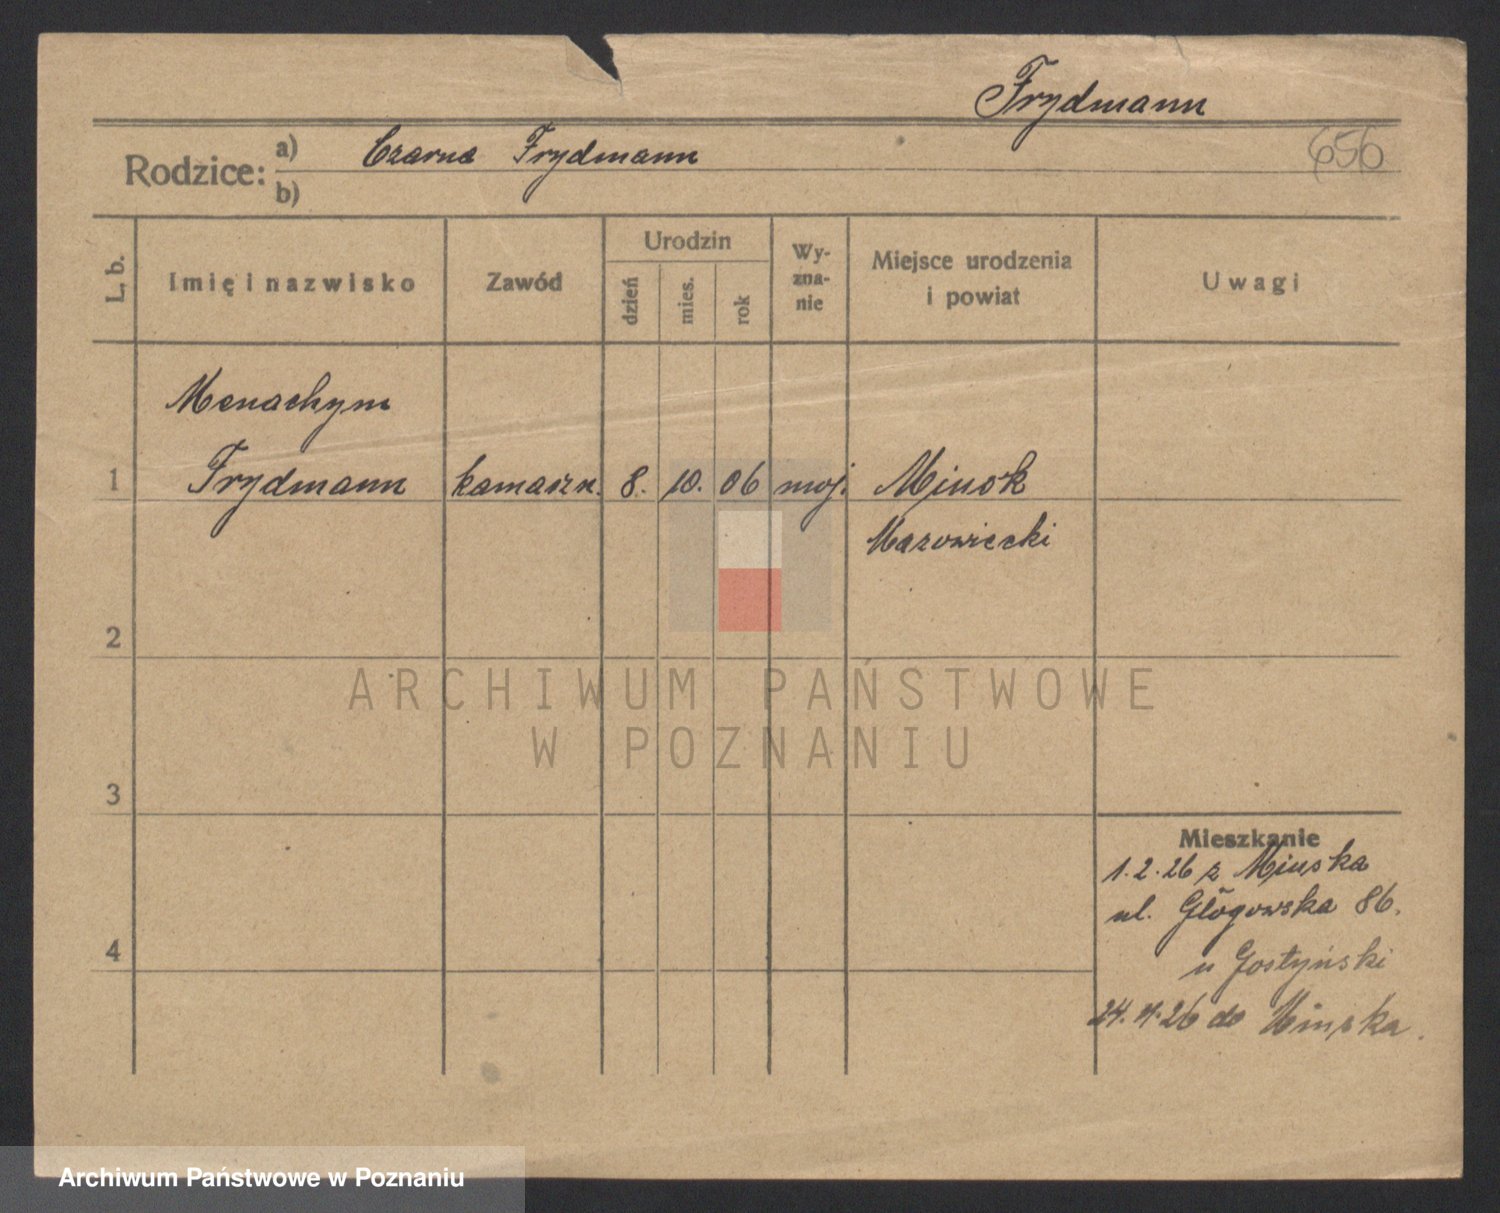 Frydmann
656
Rodzice: a) Czarna Frydmann
b)
L. b.
Imię i nazwisko
Zawód
Urodzin
dzień
mies.
rok
Wy-
zna-
nie
Miejsce urodzenia
i powiat
Uwagi
Menachym
1 Frydmann kamaszn. 8. 10. 06 moj. Minsk
Mazowiecki
2
3
4
Mieszkanie
1.2.26 z Minska
ul. Głogowska 86.
u Gostyński
24. 26 do Minska.
ARCHIWUM PAŃSTWOWE
W POZNANIU
Archiwum Państwowe w Poznaniu